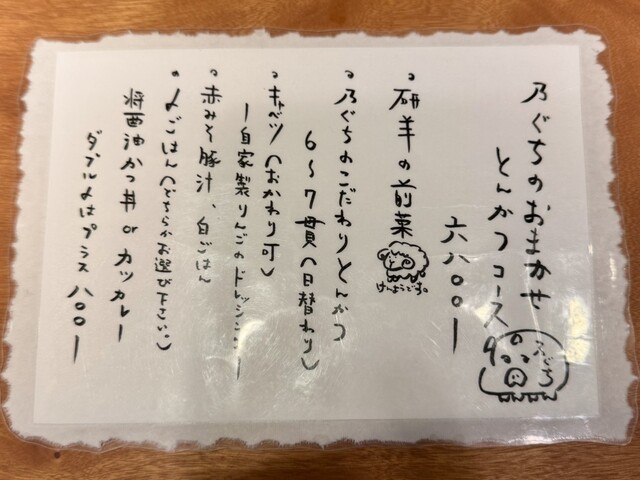 乃ぐちのおまかせ
とんかつコース
六八〇〇ー
乃ぐち
・研羊の前菜
けんようです。
・乃ぐちのこだわりとんかつ
6〜7貫(日替わり)
・キャベツ(おかわり可)
ー自家製りんごのドレッシングー
・赤みそ豚汁、白ごはん
・〆ごはん(どちらかお選び下さい。)
将酉油かつ丼 or カツカレー
ダブル〆はプラス八〇〇ー